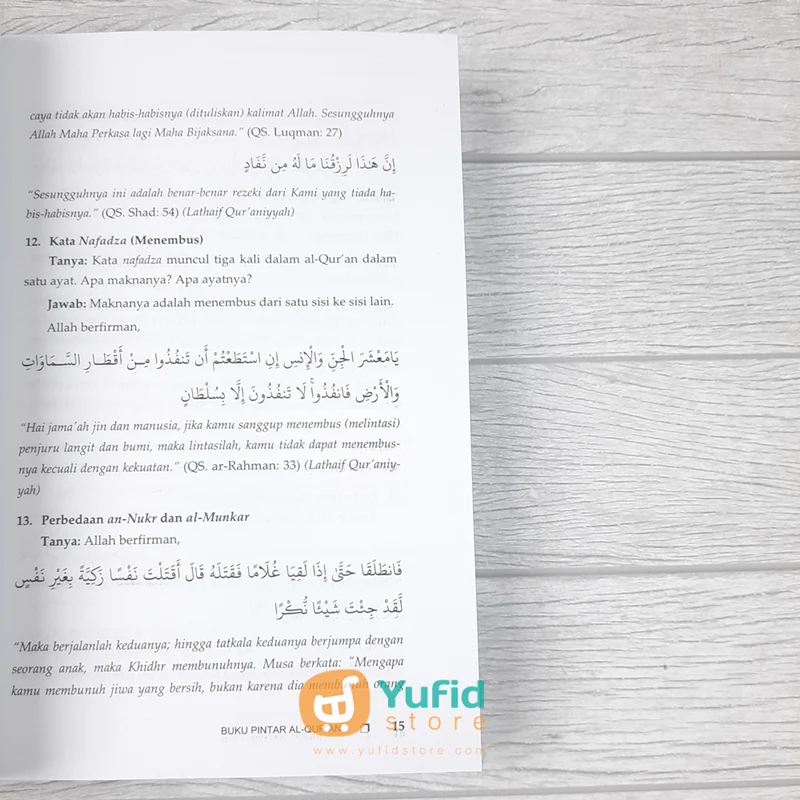 caya tidak akan habis-habisnya (dituliskan) kalimat Allah. Sesungguhnya
Allah Maha Perkasa lagi Maha Bijaksana." (QS. Luqman: 27)
إِنَّ هَـٰذَا لَرِزْقُنَا مَا لَهُ مِن نَّفَادٍ
"Sesungguhnya ini adalah benar-benar rezeki dari Kami yang tiada ha-
bis-habisnya." (QS. Shad: 54) (Lathaif Qur'aniyyah)
12. Kata Nafadza (Menembus)
Tanya: Kata nafadza muncul tiga kali dalam al-Qur'an dalam
satu ayat. Apa maknanya? Apa ayatnya?
Jawab: Maknanya adalah menembus dari satu sisi ke sisi lain.
Allah berfirman,
يَامَعْشَرَ الْجِنِّ وَالْإِنسِ إِنِ اسْتَطَعْتُمْ أَن تَنفُذُوا مِنْ أَقْطَارِ السَّمَاوَاتِ
وَالْأَرْضِ فَانفُذُواۚ لَا تَنفُذُونَ إِلَّا بِسُلْطَانٍ
"Hai jama'ah jin dan manusia, jika kamu sanggup menembus (melintasi)
penjuru langit dan bumi, maka lintasilah, kamu tidak dapat menembus-
nya kecuali dengan kekuatan." (QS. ar-Rahman: 33) (Lathaif Qur'aniy-
yah)
13. Perbedaan an-Nukr dan al-Munkar
Tanya: Allah berfirman,
فَانطَلَقَا حَتَّىٰ إِذَا لَقِيَا غُلَامًا فَقَتَلَهُ قَالَ أَقَتَلْتَ نَفْسًا زَكِيَّةً بِغَيْرِ نَفْسٍ
لَّقَدْ جِئْتَ شَيْئًا نُّكْرًا
"Maka berjalanlah keduanya; hingga tatkala keduanya berjumpa dengan
seorang anak, maka Khidhr membunuhnya. Musa berkata: "Mengapa
kamu membunuh jiwa yang bersih, bukan karena dia membunuh orang
BUKU PINTAR AL-QUR'AN 15
Yufid
store
www.yufidstore.com